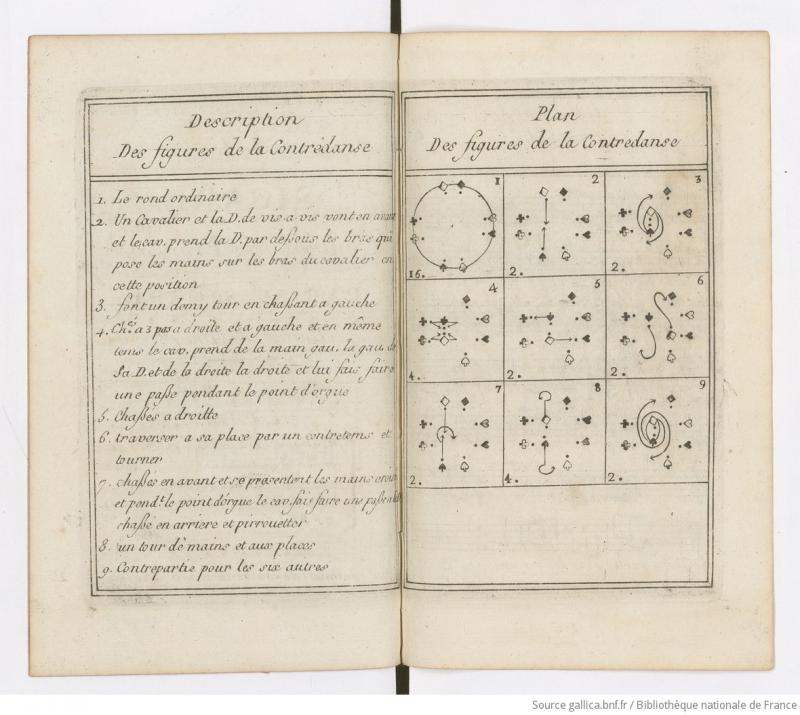 Description
Des figures de la Contredanse
1. Le rond ordinaire
2. Un Cavalier et la D. de vis-a-vis vont en avant
et le cav. prend la D. par dessous les bras qui
pose les mains sur les bras du cavalier en
cette position
3. font un demy tour en chassant a gauche
4. a 3 pas a droite et a gauche et en même
tems le cav. prend de la main gau. la gau. de
Sa D. et de la droite la droite et lui fais faire
une passe pendant le point d'orgue
5. Chassés a droitte
6. traverser a sa place par un contretems et
tourner
7. chassés en avant et se présentent les mains
et pend.t le point d'orgue le cav. fais faire une passe
chassé en arriere et pirrouetter
8. un tour de mains et aux places
9. Contrepartie pour les six autres
Plan
Des figures de la Contredanse
1
16.
2
2.
3
2.
4
4.
5
2.
6
2.
7
2.
8
4.
9
2.
Source gallica.bnf.fr / Bibliothèque nationale de France